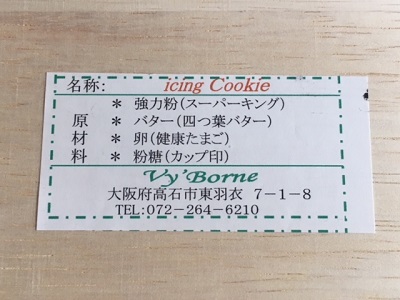 名称: icing Cookie
* 強力粉(スーパーキング)
原 * バター(四つ葉バター)
材 * 卵(健康たまご)
料 * 粉糖(カップ印)
Vy'Borne
大阪府高石市東羽衣 7-1-8
TEL:072-264-6210